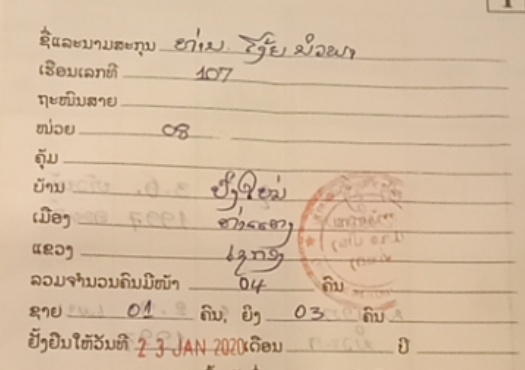 1
ຊື່ແລະນາມສະກຸນ ທ່ານ
ເຮືອນເລກທີ 107
ຖະໜົນສາຍ
ໜ່ວຍ 08
ຄຸ້ມ
ບ້ານ ປົ່ງໃໝ່
ເມືອງ ທ່າແຕງ
ແຂວງ ເຊກອງ
ລວມຈຳນວນຄົນມີໜ້າ 04 ຄົນ
ຊາຍ 01 ຄົນ, ຍິງ 03 ຄົນ
ຢັ້ງຢືນໃຫ້ວັນທີ 23 JAN 2020 ເດືອນ ປີ